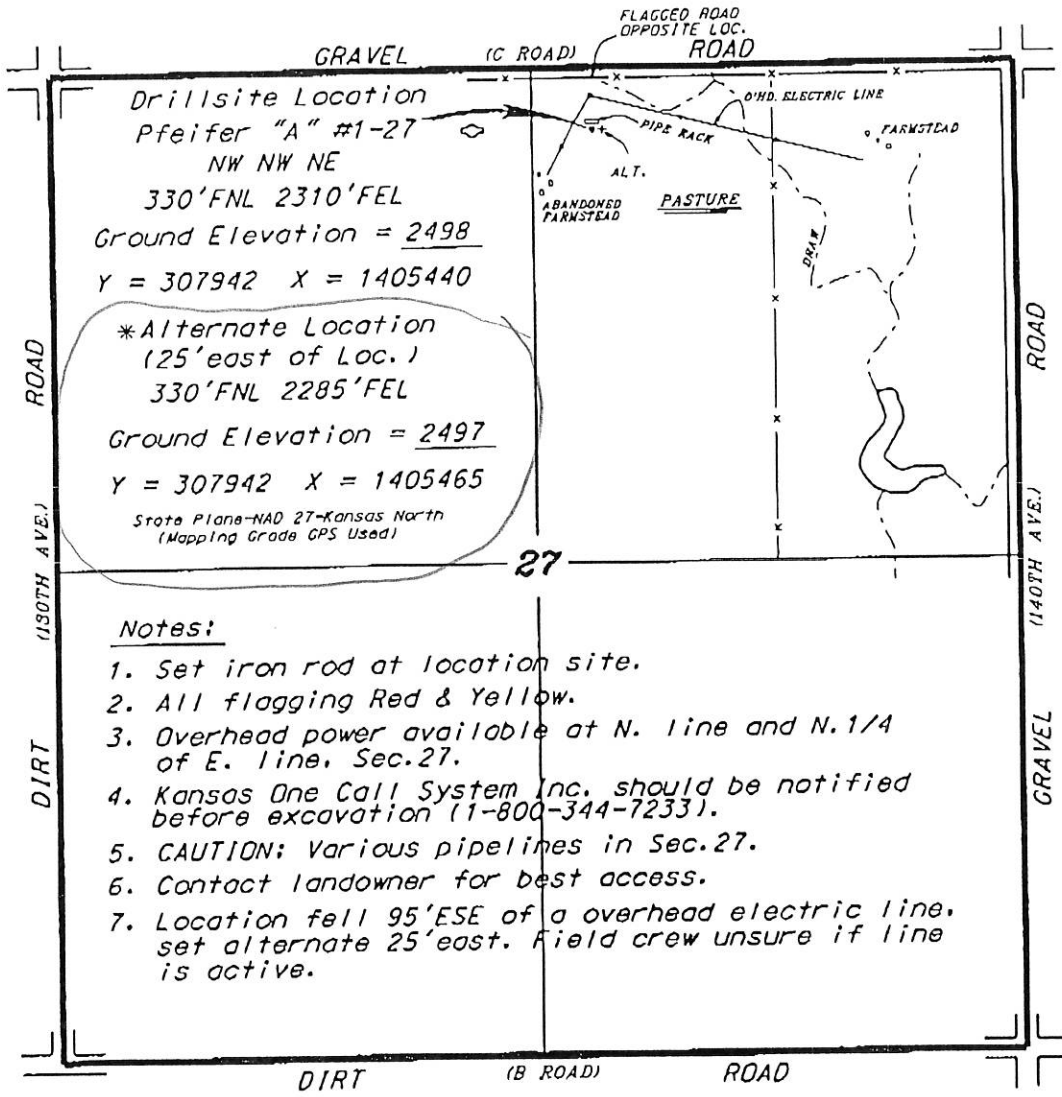 FLAGGED ROAD
OPPOSITE LOC.
GRAVEL (C ROAD) ROAD
Drillsite Location
Pfeifer "A" #1-27
NW NW NE
330'FNL 2310'FEL
Ground Elevation = 2498
Y = 307942 X = 1405440
*Alternate Location
(25'east of Loc.)
330'FNL 2285'FEL
Ground Elevation = 2497
Y = 307942 X = 1405465
State Plane-NAD 27-Kansas North
(Mapping Grade GPS Used)
O'HD. ELECTRIC LINE
PIPE RACK
FARMSTEAD
ALT.
ABANDONED
FARMSTEAD
PASTURE
DRAW
ROAD
(130TH AVE.)
DIRT
ROAD
(140TH AVE.)
GRAVEL
27
Notes:
1. Set iron rod at location site.
2. All flagging Red & Yellow.
3. Overhead power available at N. line and N.1/4
of E. line, Sec.27.
4. Kansas One Call System Inc. should be notified
before excavation (1-800-344-7233).
5. CAUTION: Various pipelines in Sec.27.
6. Contact landowner for best access.
7. Location fell 95'ESE of a overhead electric line,
set alternate 25'east. Field crew unsure if line
is active.
DIRT (B ROAD) ROAD